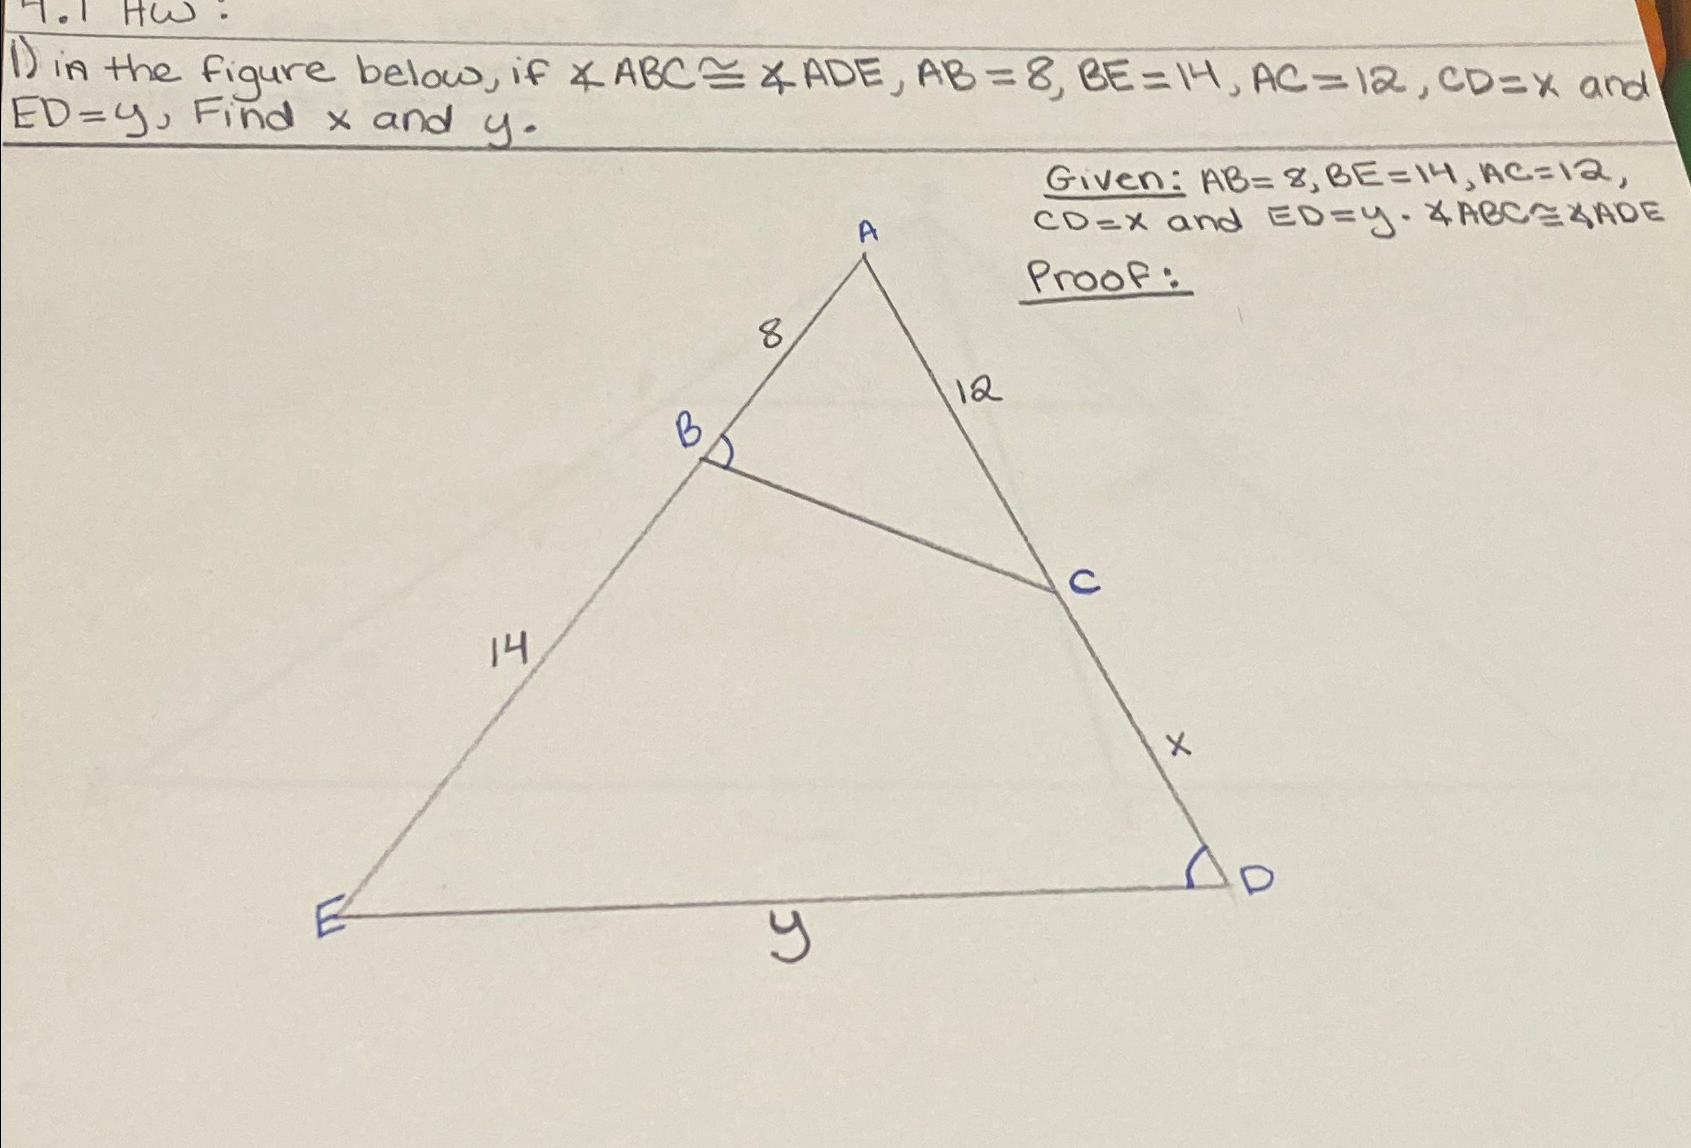 4.1 HW:
1) in the figure below, if ∡ABC≅∡ADE, AB=8, BE=14, AC=12, CD=x and
ED=y, Find x and y.
Given: AB=8, BE=14, AC=12,
CD=x and ED=y. ∡ABC≅∡ADE
Proof:
A
8
12
B
C
14
x
D
E
y